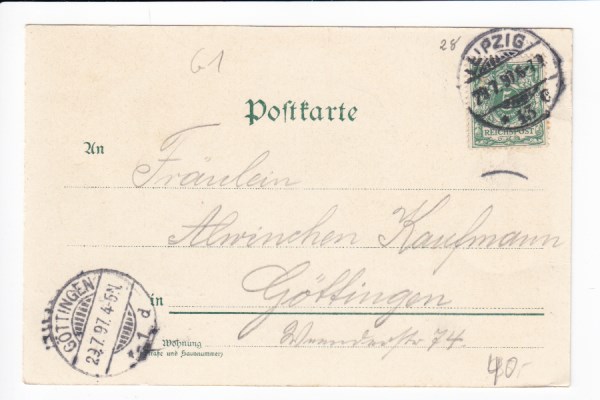 61
28
LEIPZIG
29.7.97. 6-7 N
* 13 c
5
REICHSPOST
Postkarte
An
Fräulein
Alwinchen Kaufmann
in Göttingen
Weenderstr 74.
Wohnung
(Straße und Hausnummer)
GÖTTINGEN
29.7.97. 4-5 N.
* 1 d
40.-